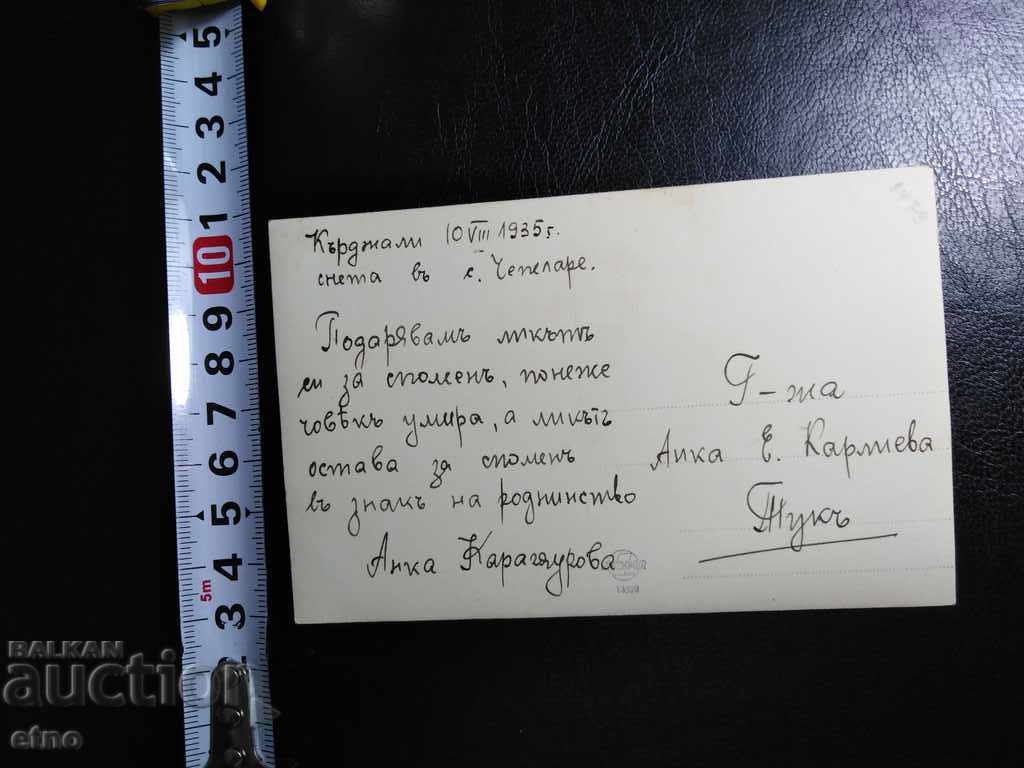 Кърджали 10 VIII 1935 г.
снета въ с. Чепеларе.
Подарявамъ ликътъ
си за споменъ, понеже
човѣкъ умира, а ликътъ
остава за споменъ
въ знакъ на роднинство
Анка Карагяурова
Г-жа
Анка Е. Карлиева
Тукъ
5
4
3
2
11
10
9
8
7
6
5
4
5m
3
BALKAN
auction
etno